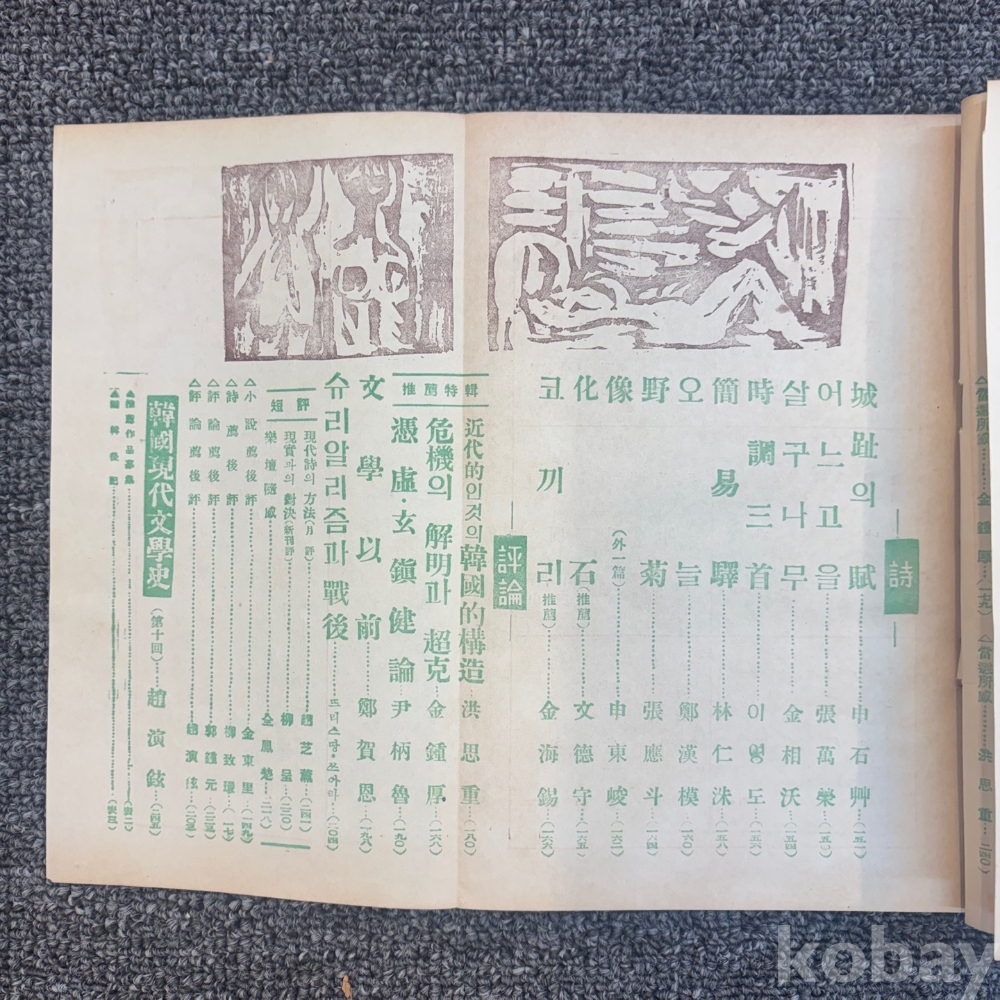 詩
城趾의 賦……申石艸…(一五一)
어느 고을……張萬榮…(一五二)
살구나무……金相沃…(一五四)
時調三首……이영도…(一五六)
簡易驛……林仁洙…(一五八)
오늘……鄭漢模…(一六〇)
野菊……張應斗…(一六四)
像(外一篇)……申東峻…(一六二)
化石(推薦)……文德守…(一六五)
코끼리(推薦)……金海錫…(一六六)
評論
推薦特輯
近代的인것의 韓國的構造…洪思重…(一八〇)
危機의 解明과 超克…金鍾厚…(一六八)
憑虛·玄鎭健論…尹柄魯…(一九〇)
文學以前……鄭賀恩…(一九八)
슈리알리즘과 戰後……뜨리스땅·쯔아라…(二〇四)
短評
現代詩의 方法(月評)……趙芝薰…(二四一)
現實과의 對決(新刊評)……柳呈…(二三〇)
樂壇隨感……全鳳楚…(二二八)
△小說薦後評……金東里…(一四九)
△詩薦後評……柳致環…(一一七)
△評論薦後評……郭鍾元…(二三五)
△評論薦後評……趙演鉉…(二〇三)
韓國現代文學史(第十回)……趙演鉉…(二四五)
△推薦作品募集
△編輯後記
kobay